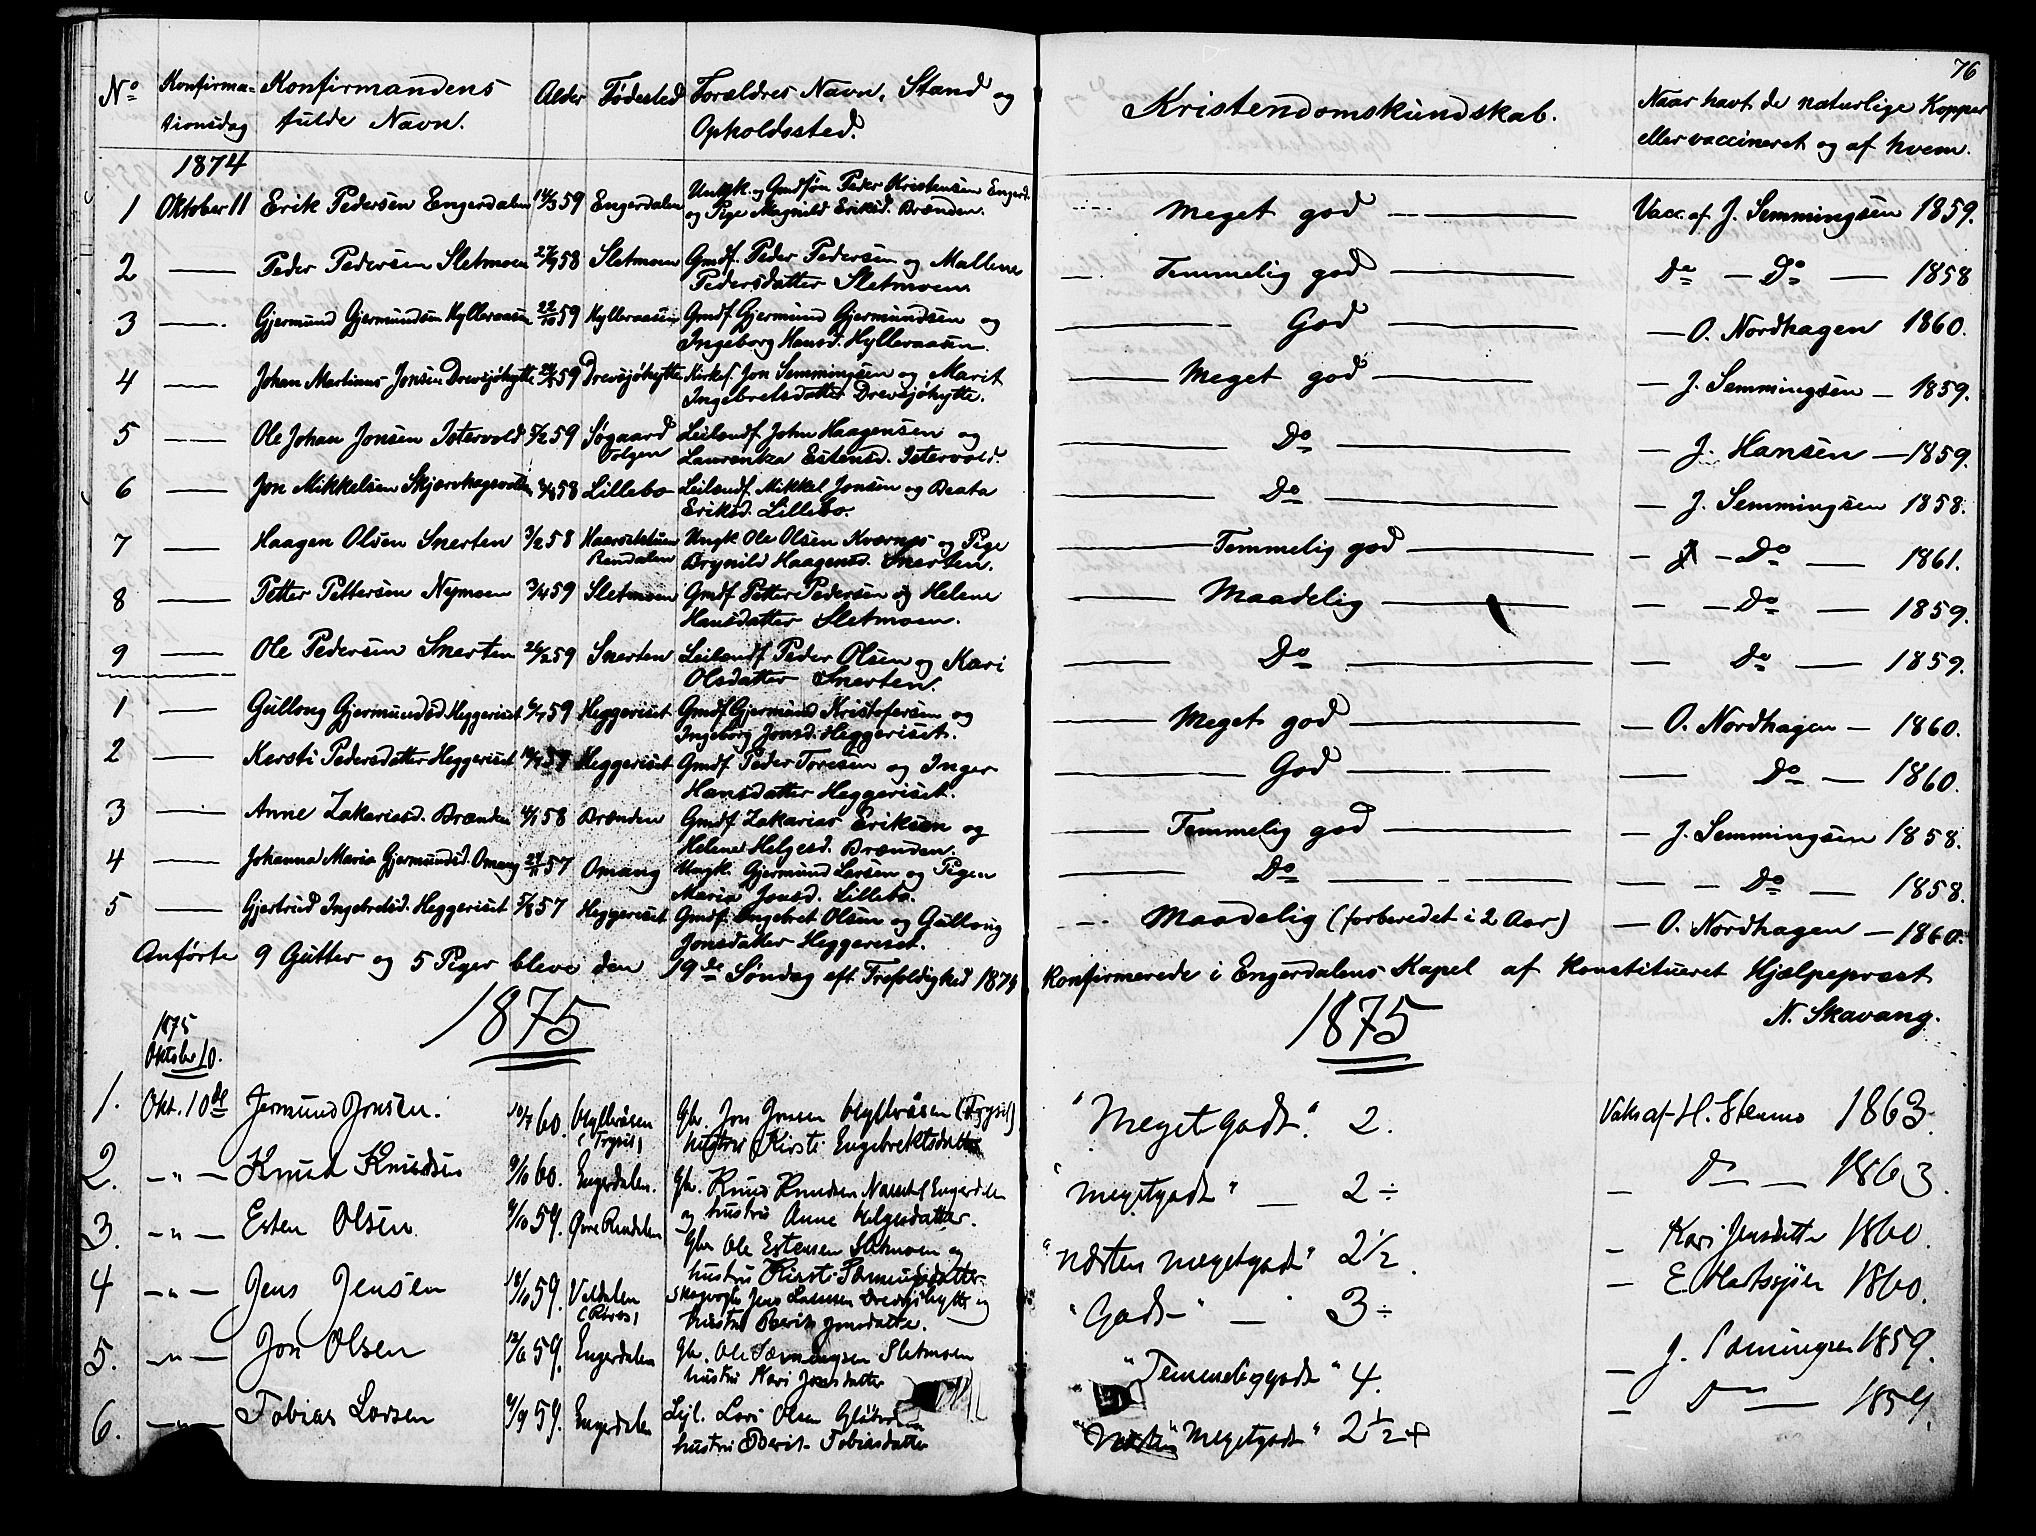 76
No Konfirma- Konfirmandens Alder Fødested Forældres Navn, Stand og Kristendomskundskab. Naar havt de naturlige Kopper
tionsdag fulde Navn. Opholdssted. eller vaccineret og af hvem.
1874
1 Oktober 11 Erik Pedersen Engerdalen 59 Engerdalen Ungk. og Gmdsøn Peder Kristensen Engerd. Meget god Vacc. af J. Semmingsen 1859.
og Pige Magnild Eriksd. Brænden.
2 — Peder Pedersen Sletmoen 27/9 58 Sletmoen Gmdf. Peder Pedersen og Mallene Temmelig god Do — Do — 1858
Pedersdatter Sletmoen.
3 — Gjermund Gjermundsen Hylleraasen 22/10 59 Hylleraasen Gmdf Gjermund Gjermundsen og God — O. Nordhagen 1860.
Ingeborg Hansd. Hylleraasen.
4 — Johan Martinus Jonsen Drevsjøhytte 59 Drevsjøhytte Kirkes. Jon Semmingsen og Marit Meget god — J. Semmingsen — 1859.
Ingebretsdatter Drevsjøhytte.
5 — Ole Johan Jonsen Istervold 5/2 59 Søgaard Leilændf John Haagensen og Do — J. Hansen — 1859.
Tolgen Laurentza Estensd. Istervold.
6 — Jon Mikkelsen Skjærvhagsvolden 58 Lillebo Leilændf. Mikkel Jonsen og Beata Do — J. Semmingsen 1858.
Eriksd. Lillebo.
7 — Haagen Olsen Snerten 3/2 58 Haarsetstuen Ungk Ole Olsen Kværnes og Pige Temmelig god — Do — 1861.
Rendalen Brynild Haagensd. Snerten.
8 — Petter Pettersen Nymoen 3/4 59 Sletmoen Gmdf Petter Pedersen og Helene Maadelig — — Do — 1859.
Hansdatter Sletmoen.
9 — Ole Pedersen Snerten 26/2 59 Snerten Leilændf Peder Olsen og Kari Do — Do — 1859.
Olsdatter Snerten.
1 — Gullong Gjermundsd Heggeriset 6/7 59 Heggeriset Gmdf Gjermund Kristofersen og Meget god — O. Nordhagen — 1860.
Ingeborg Jonsd. Heggeriset.
2 — Kersti Pedersdatter Heggeriset 59 Heggeriset Gmdf Peder Toresen og Inger God — Do — 1860.
Hansdatter Heggeriset.
3 — Anne Zakariasd. Brænden 58 Brænden Gmdf Zakarias Eriksen og Temmelig god — J. Semmingsen 1858.
Helene Helgesd. Brænden.
4 — Johanna Maria Gjermundsd. Omang 57 Omang Ungk. Gjermund Larsen og Pigen Do — — Do — 1858.
Maria Jonsd. Lillebo.
5 — Gjertrud Ingebretsd. Heggeriset 5/8 57 Heggeriset Gmdf. Ingebret Olsen og Gullong Maadelig (forberedet i 2 Aar) — O. Nordhagen — 1860.
Jonsdatter Heggeriset.
Anførte 9 Gutter og 5 Piger bleve den 19de Søndag eft Trefoldighed 1874 Konfirmerede i Engerdalens Kapel af Konstitueret Hjælpeprest
N. Skavang.
1875 1875
1875
Oktober 10.
1. Okt. 10de Jermund Jonsen. 10/7 60. Hylleråsen Gbr. Jon Jonsen Hylleråsen (Trysil) "Meget godt." 2. Vaks af H. Stenmo 1863.
(Trysil) hustru Kirsti Engebrektsdatter
2. — " — Knud Knudsen 9/10 60. Engerdalen. Gbr. Knud Knudsen Engerdalen "megetgodt" — 2 ÷ — Do — 1863.
og hustru Anne Helgesdatter.
3. — " — Esten Olsen 9/10 59. Øvre Rendalen Gbr Ole Estensen Sletmoen og "næsten megetgodt" 2 1/2. — Kari Jensdatter 1860.
hustru Kirsti
4 — " — Jens Jensen 18/10 59. Veldalen Skogvogter Jens Larsen Drevsjøhytte og "Godt" — 3 ÷ — E. 1860.
(Røros) hustru Berit Jonsdatter.
5. — " — Jon Olsen 12/6 59. Engerdalen Gbr. Ole Sletmoen "Temmeliggodt" 4. — J. 1859.
hustru Kari Jonsdatter
6. — " — Tobias Larsen 9/9 59. Engerdalen Lejl. Lars Olsen "Næsten" Megetgodt" 2 1/2 + — Do — 1859.
hustru Berit Tobiasdatter